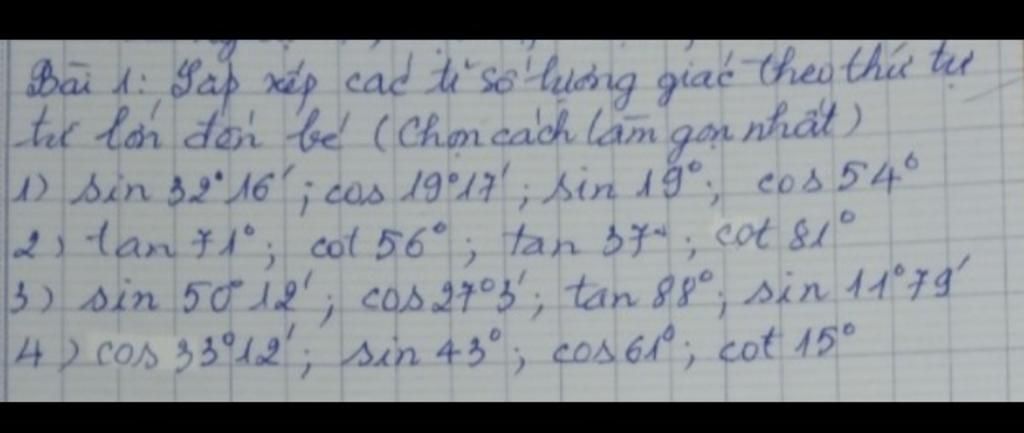 Bài 1: Sắp xếp các tỉ số lượng giác theo thứ tự
từ lớn đến bé (Chọn cách làm gọn nhất)
1) sin 32°16'; cos 19°17'; sin 19°; cos 54°
2) tan 71°; cot 56°; tan 37°; cot 81°
3) sin 50°12'; cos 27°3'; tan 88°; sin 11°79'
4) cos 33°12'; sin 43°; cos 61°; cot 15°